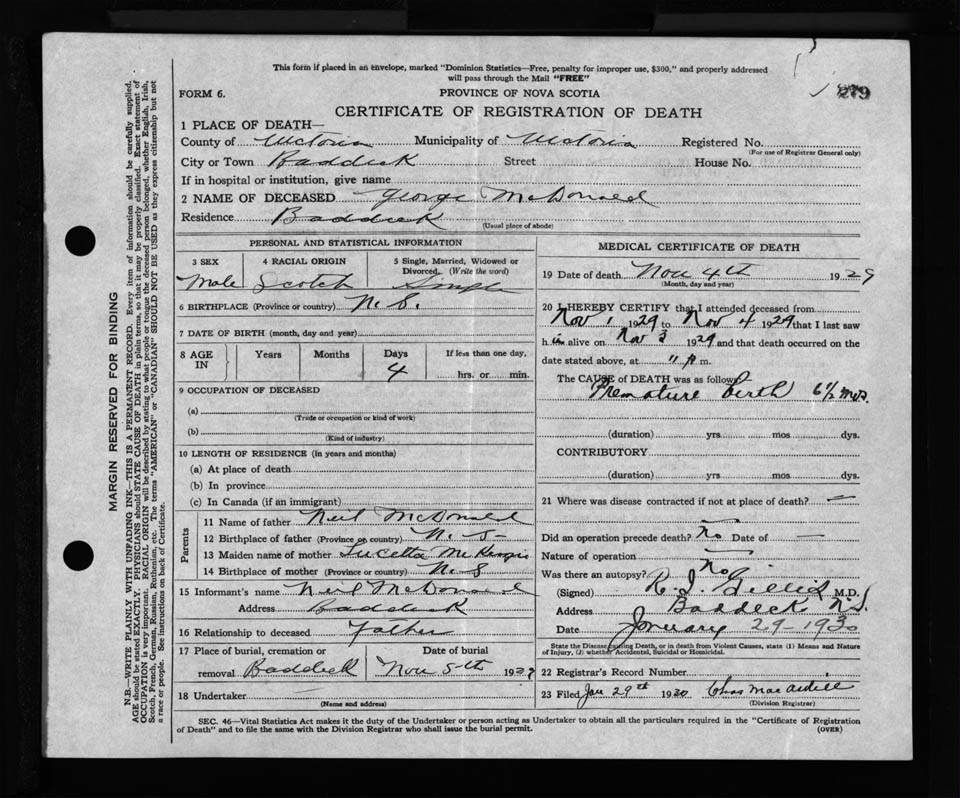 This form if placed in an envelope, marked "Dominion Statistics—Free, penalty for improper use, $300," and properly addressed
will pass through the Mail "FREE"
FORM 6.
PROVINCE OF NOVA SCOTIA
279
CERTIFICATE OF REGISTRATION OF DEATH
1 PLACE OF DEATH—
County of Victoria Municipality of Victoria Registered No.
(For use of Registrar General only)
City or Town Baddeck Street House No.
If in hospital or institution, give name
2 NAME OF DECEASED George McDonald
Residence Baddeck
(Usual place of abode)
PERSONAL AND STATISTICAL INFORMATION
3 SEX 4 RACIAL ORIGIN 5 Single, Married, Widowed or Divorced. (Write the word)
Male Scotch Single
6 BIRTHPLACE (Province or country) N. S.
7 DATE OF BIRTH (month, day and year)
8 AGE IN Years Months Days If less than one day,
4 hrs. or min.
9 OCCUPATION OF DECEASED
(a)
(Trade or occupation or kind of work)
(b)
(Kind of industry)
10 LENGTH OF RESIDENCE (in years and months)
(a) At place of death
(b) In province
(c) In Canada (if an immigrant)
Parents
11 Name of father Neil McDonald
12 Birthplace of father (Province or country) N. S
13 Maiden name of mother Lucetta McKenzie
14 Birthplace of mother (Province or country) N. S
15 Informant's name Neil McDonald
Address Baddeck
16 Relationship to deceased Father
17 Place of burial, cremation or removal Baddeck Date of burial Nov 5th 1929
18 Undertaker
(Name and address)
MEDICAL CERTIFICATE OF DEATH
19 Date of death Nov 4th 1929
(Month, day and year)
20 I HEREBY CERTIFY that I attended deceased from
Nov 1 1929 to Nov 4 1929 that I last saw
him alive on Nov 3 1929 and that death occurred on the
date stated above, at 11 p m.
The CAUSE of DEATH was as follows:
Premature birth 6½ mos.
(duration) yrs mos dys.
CONTRIBUTORY
(duration) yrs mos dys.
21 Where was disease contracted if not at place of death? —
Did an operation precede death? No Date of —
Nature of operation —
Was there an autopsy? No
(Signed) R. J. Gillis M.D.
Address Baddeck N.S.
Date January 29-1930
State the Disease causing Death, or in death from Violent Causes, state (1) Means and Nature
of Injury, (2) whether Accidental, Suicidal or Homicidal.
22 Registrar's Record Number
23 Filed Jan 29th 1930 Chas
(Division Registrar)
SEC. 46—Vital Statistics Act makes it the duty of the Undertaker or person acting as Undertaker to obtain all the particulars required in the "Certificate of Registration
of Death" and to file the same with the Division Registrar who shall issue the burial permit.
(OVER)
MARGIN RESERVED FOR BINDING
N.B.—WRITE PLAINLY WITH UNFADING INK—THIS IS A PERMANENT RECORD. Every item of information should be carefully supplied.
AGE should be stated EXACTLY. PHYSICIANS should STATE CAUSE OF DEATH in plain terms, so that it may be properly classified. Exact statement of
OCCUPATION is very important. RACIAL ORIGIN will be described by stating to what people or tongue the deceased person belonged, whether English, Irish,
Scotch, French, German, Russian, Ruthenian, etc. The terms "AMERICAN" or "CANADIAN" SHOULD NOT BE USED as they express citizenship but not
a race or people. See instructions on back of Certificate.